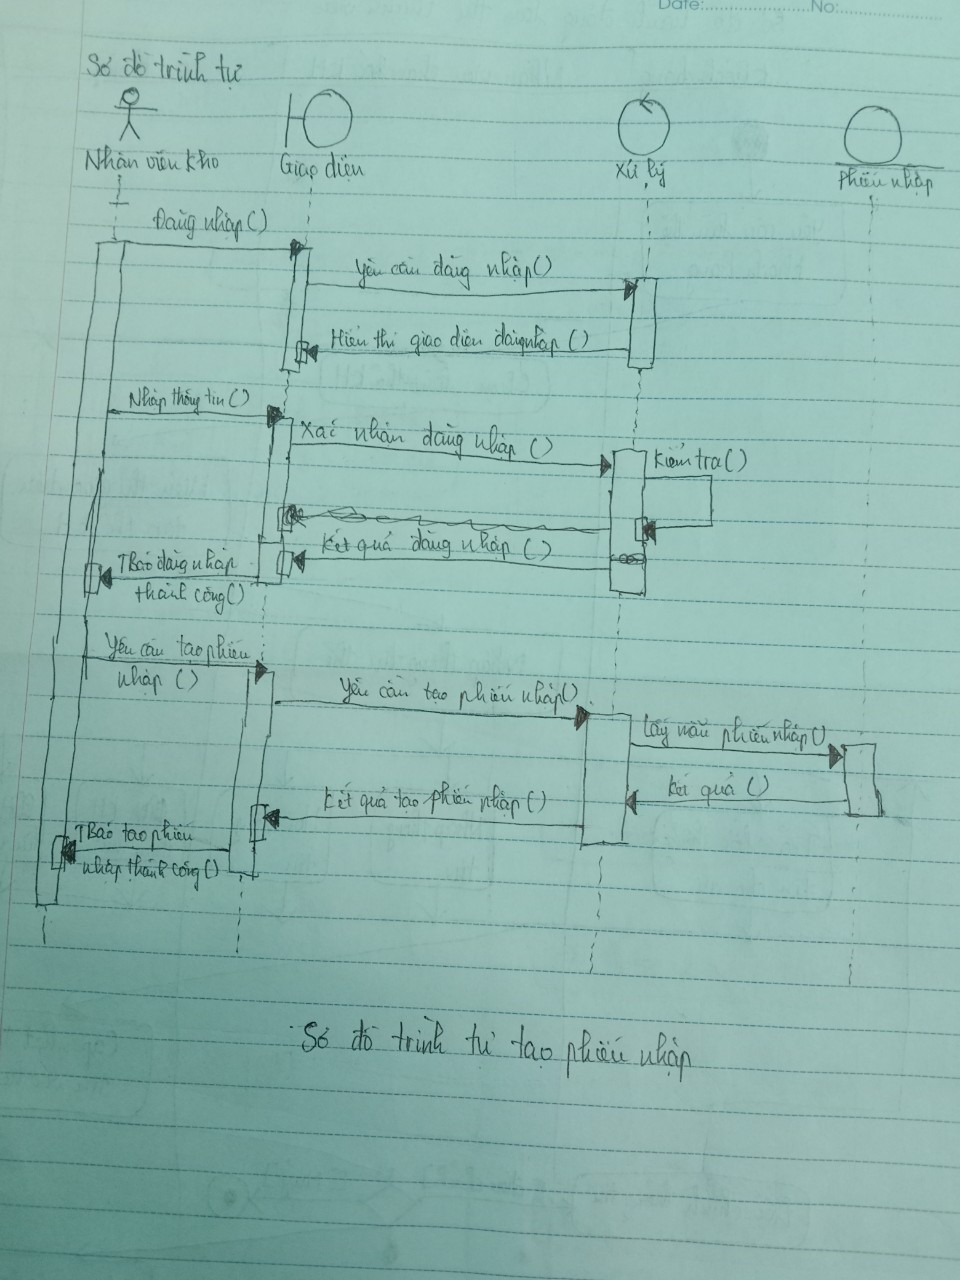 Date: No:
Sơ đồ trình tự
Nhân viên kho
Giao diện
Xử lý
Phiếu nhập
Đăng nhập()
Yêu cầu đăng nhập()
Hiển thị giao diện đăng nhập ()
Nhập thông tin()
Xác nhận đăng nhập ()
Kiểm tra()
Kết quả đăng nhập ()
TBáo đăng nhập
thành công()
Yêu cầu tạo phiếu
nhập ()
Yêu cầu tạo phiếu nhập()
Lấy mẫu phiếu nhập()
Kết quả ()
Kết quả tạo phiếu nhập()
TBáo tạo phiếu
nhập thành công()
Sơ đồ trình tự tạo phiếu nhập